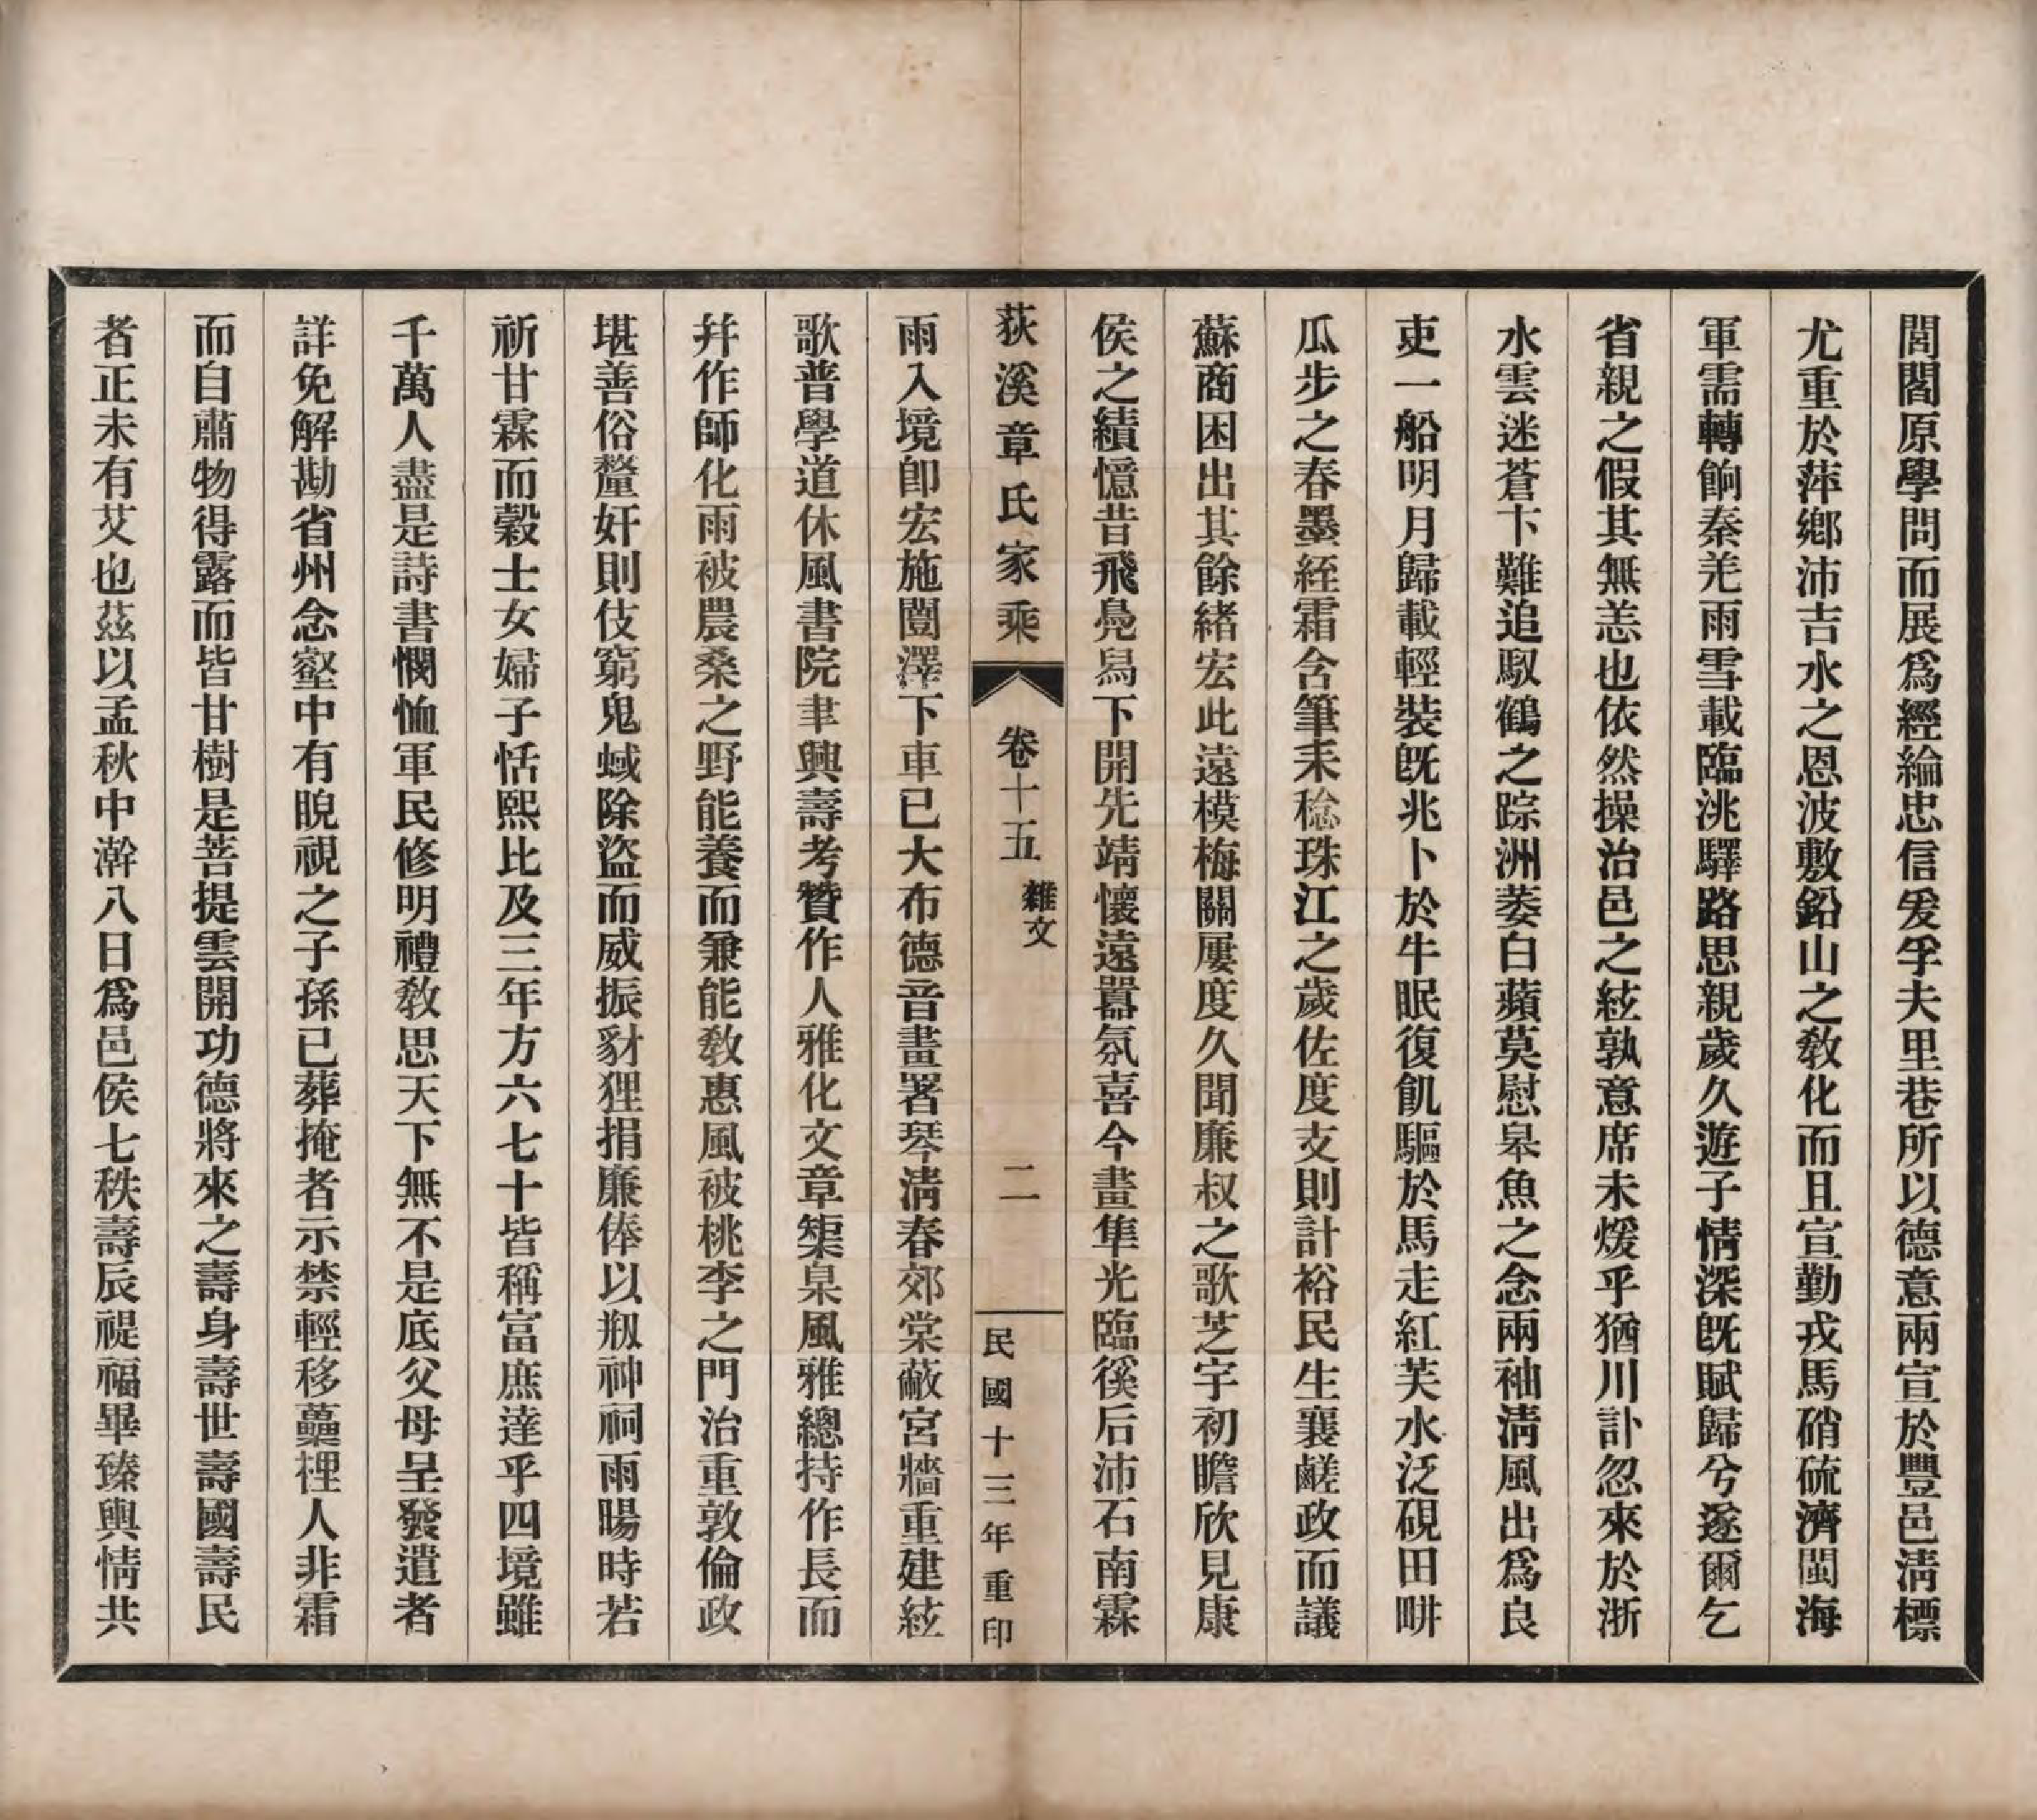 閭閻原學問而展爲經綸忠信爰孚夫里巷所以德意兩宣於豐邑淸標
尤重於萍鄕沛吉水之恩波敷鉛山之敎化而且宣勤戎馬硝硫濟閩海
軍需轉餉秦羌雨雪載臨洮驛路思親歲久遊子情深旣賦歸兮遂爾乞
省親之假其無恙也依然操治邑之絃孰意席未煖乎猶川訃忽來於浙
水雲迷蒼卞難追馭鶴之踪洲萎白蘋莫慰皋魚之念兩袖淸風出爲良
吏一船明月歸載輕裝旣兆卜於牛眠復飢驅於馬走紅芙水泛硯田畊
瓜步之春墨絰霜含筆耒稔珠江之歲佐度支則計裕民生襄鹺政而議
蘇商困出其餘緒宏此遠模梅關屢度久聞廉叔之歌芝宇初瞻欣見康
侯之績憶昔飛鳧舄下開先靖懷遠嚣氛喜今畫隼光臨徯后沛石南霖
荻溪章氏家乘 卷十五 雜文 二 民國十三年重印
雨入境卽宏施闓澤下車已大布德音畫署琴淸春郊棠蔽宮牆重建絃
歌普學道休風書院聿興壽考贊作人雅化文章榘臬風雅總持作長而
幷作師化雨被農桑之野能養而兼能敎惠風被桃李之門治重敦倫政
堪善俗釐奸則伎窮鬼蜮除盜而威振豺狸捐廉俸以剏神祠雨暘時若
祈甘霖而穀士女婦子恬熙比及三年方六七十皆稱富庶達乎四境雖
千萬人盡是詩書憫恤軍民修明禮敎思天下無不是底父母呈發遣者
詳免解勘省州念壑中有睨視之子孫已葬掩者示禁輕移虆梩人非霜
而自肅物得露而皆甘樹是菩提雲開功德將來之壽身壽世壽國壽民
者正未有艾也茲以孟秋中澣八日爲邑侯七秩壽辰禔福畢臻輿情共